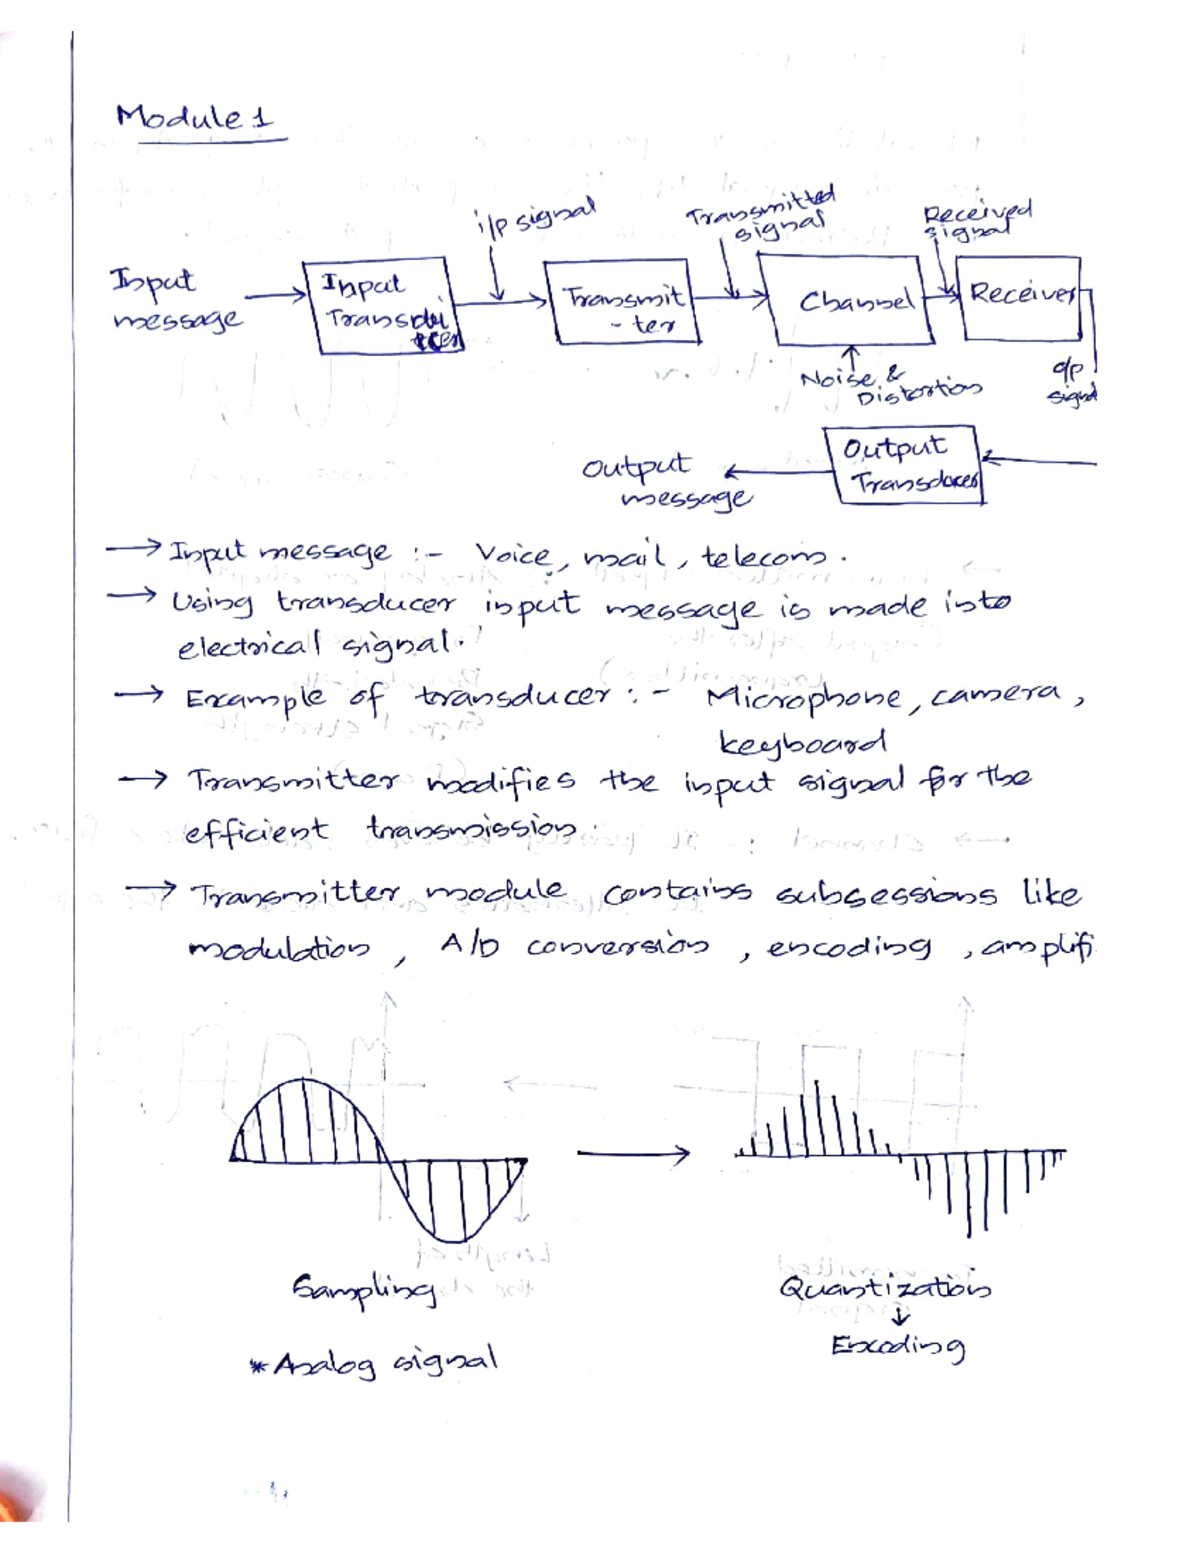 Module 1
i/p signal
Transmitted
signal
Received
signal
Input
message
Input
Transdu
cer
Transmit
-ter
Channel
Receiver
Noise &
Distortion
o/p
signal
Output
message
Output
Transducer
→ Input message :- Voice, mail, telecom.
→ Using transducer input message is made into
electrical signal.
→ Example of transducer :- Microphone, camera,
keyboard
→ Transmitter modifies the input signal for the
efficient transmission.
→ Transmitter module contains subsessions like
modulation, A/D conversion, encoding, amplifi
Sampling
Quantization
↓
Encoding
* Analog signal